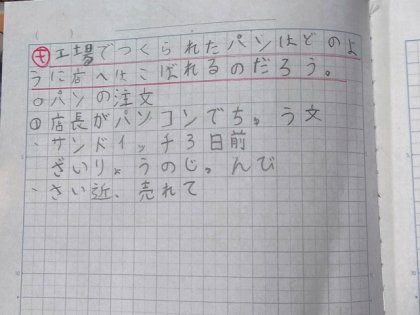 ( )
も 工場でつくられたパンはどのよ
うに店へはこばれるのだろう。
○パンの注文
① 店長がパソコンでちゅう文
・サンドイッチ3日前
ざいりょうのじゅんび
・さい近、売れて